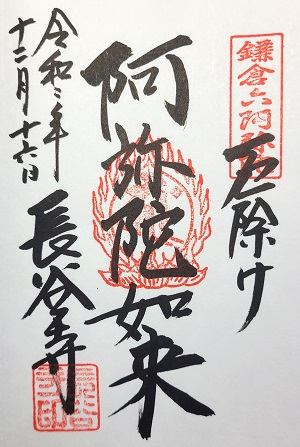 鎌倉六阿弥陀
厄除け
阿弥陀如来
令和二年
十二月十六日
長谷寺